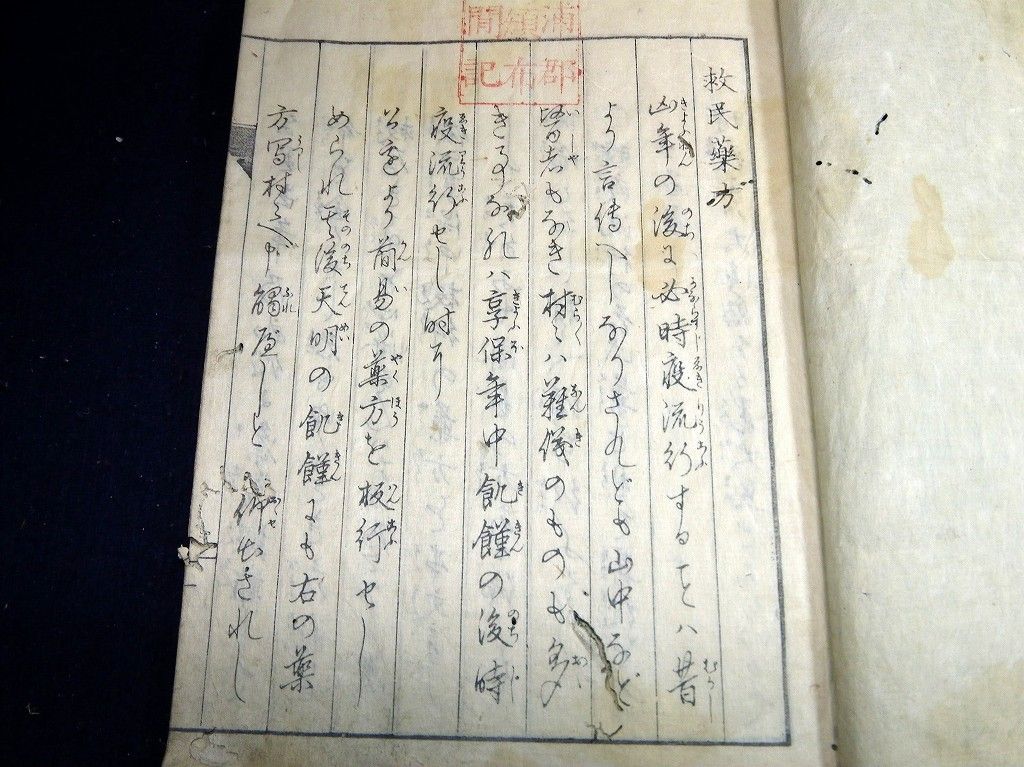 救民藥方
凶年の後に必時疫流行することハ昔
より言傳へしなりされども山中など
醫者もなき村々ハ難儀のものも多
き事なれハ享保年中飢饉の後時
疫流行せし時
公邊より簡易の薬方を板行せし
められ其後天明の飢饉にも右の薬
方写村々へ觸へしと仰出されし